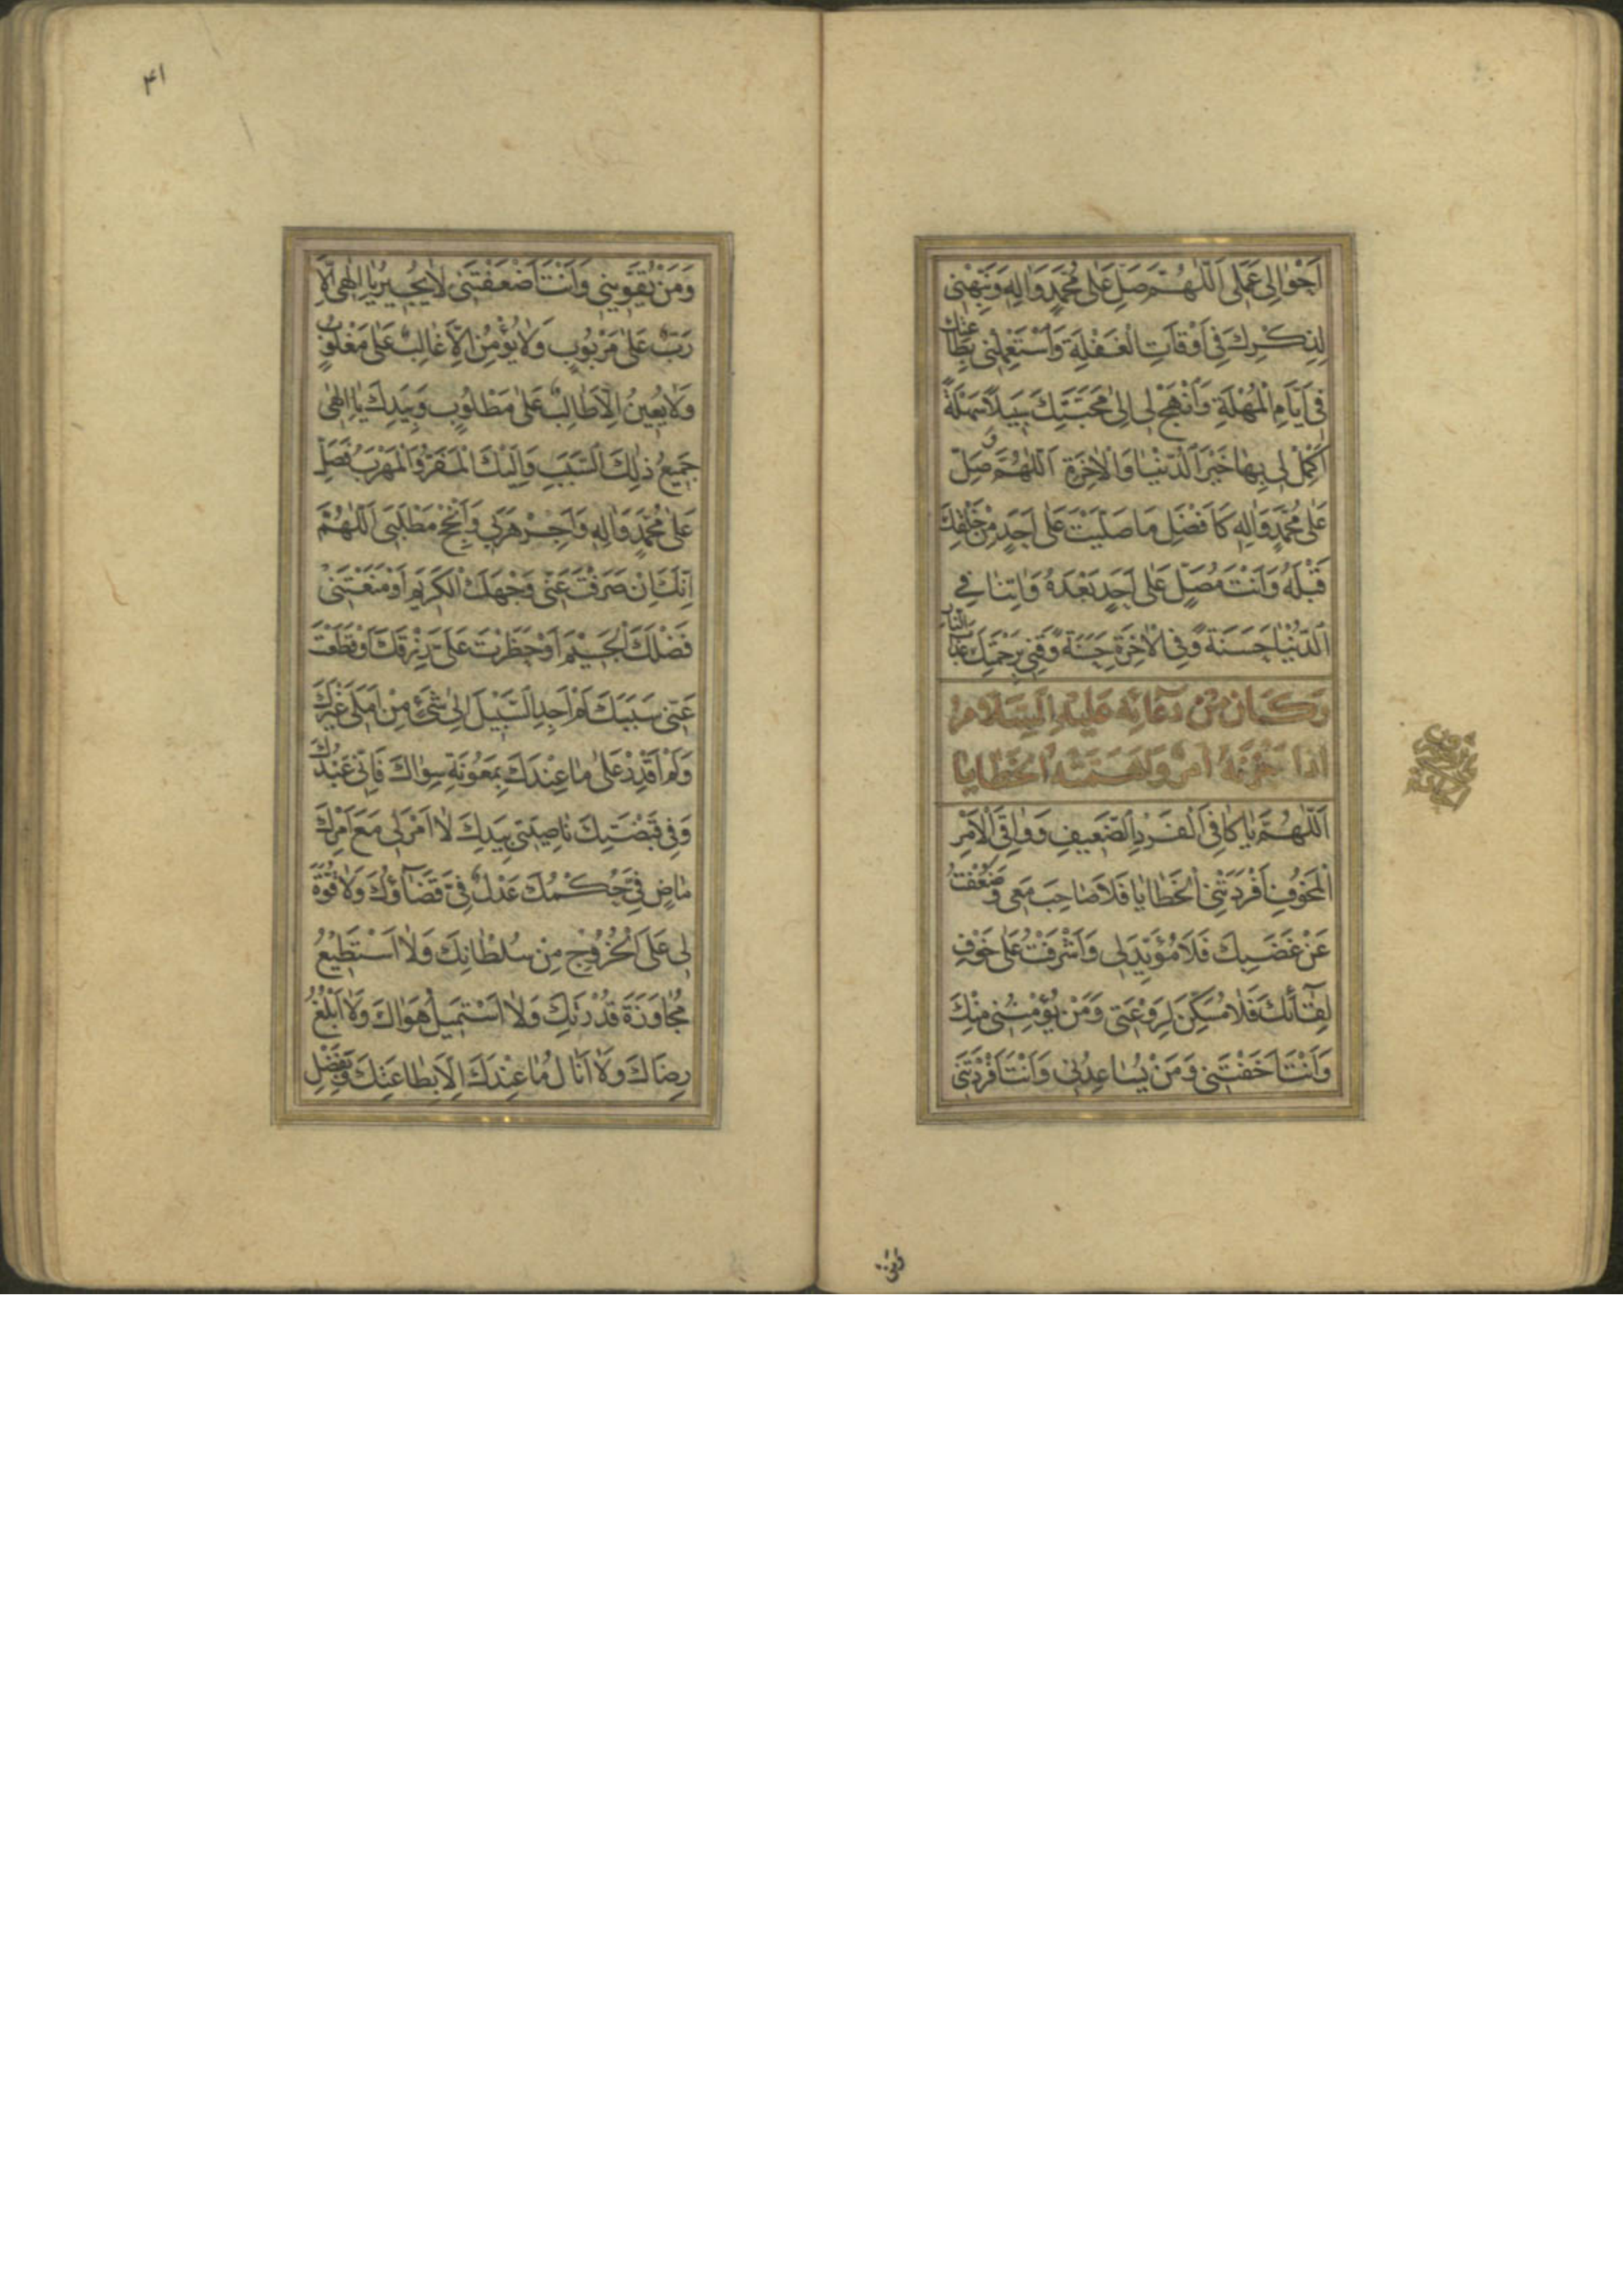 اَحْوٰالِى عَمَلى اَللّٰهُمَّ صَلِّ عَلٰى مُحَمَّدٍ وَاٰلِهِ وَنَبِّهْنى
لِذِكْرِكَ فِى اَوْقَاتِ الْغَفْلَةِ وَاسْتَعْمِلْنى بِطٰاعَتِكَ
فى اَيَّامِ الْمُهْلَةِ وَانْهَجْ لى اِلٰى مَحَبَّتِكَ سَبيلاً سَهْلَةً
اَكْمِلْ لى بِهٰا خَيْرَ الدُّنْيٰا وَالْاٰخِرَةِ اَللّٰهُمَّ وَصَلِّ
عَلٰى مُحَمَّدٍ وَاٰلِهِ كَاَفْضَلِ مٰا صَلَّيْتَ عَلٰى اَحَدٍ مِنْ خَلْقِكَ
قَبْلَهُ وَاَنْتَ مُصَلٍّ عَلٰى اَحَدٍ بَعْدَهُ وَاٰتِنٰا فِى
الدُّنْيٰا حَسَنَةً وَفِى الْاٰخِرَةِ حَسَنَةً وَقِنى بِرَحْمَتِكَ عَذٰابَ النّٰارِ
وَكَانَ مِنْ دُعَائِهِ عَلَيْهِ السَّلَامُ
اِذَا حَزَنَهُ اَمْرٌ وَاَهَمَّتْهُ الْخَطَايَا
اَللّٰهُمَّ يٰا كٰافِىَ الْفَرْدِ الضَّعيفِ وَوٰاقِىَ الْاَمْرِ
الْمَخُوفِ اَفْرَدَتْنِى الْخَطٰايٰا فَلاٰ صٰاحِبَ مَعى وَضَعُفْتُ
عَنْ غَضَبِكَ فَلاٰ مُؤَيِّدَ لى وَاَشْرَفْتُ عَلٰى خَوْفِ
لِقٰائِكَ فَلاٰ مُسَكِّنَ لِرَوْعَتى وَمَنْ يُؤْمِنُنى مِنْكَ
وَاَنْتَ اَخَفْتَنى وَمَنْ يُسٰاعِدُنى وَاَنْتَ اَفْرَدْتَنى
۴۱
وَمَنْ يُقَوّينى وَاَنْتَ اَضْعَفْتَنى لاٰ يُجيرُ يٰا اِلٰهى اِلاّٰ
رَبٌّ عَلٰى مَرْبُوبٍ وَلاٰ يُؤْمِنُ اِلاّٰ غٰالِبٌ عَلٰى مَغْلُوبٍ
وَلاٰ يُعينُ اِلاّٰ طٰالِبٌ عَلٰى مَطْلُوبٍ وَبِيَدِكَ يٰا اِلٰهى
جَميعُ ذٰلِكَ السَّبَبِ وَاِلَيْكَ الْمَفَرُّ وَالْمَهْرَبُ فَصَلِّ
عَلٰى مُحَمَّدٍ وَاٰلِهِ وَاَجِرْ هَرَبى وَاَنْجِحْ مَطْلَبى اَللّٰهُمَّ
اِنَّكَ اِنْ صَرَفْتَ عَنّى وَجْهَكَ الْكَريمَ اَوْ مَنَعْتَنى
فَضْلَكَ الْجَسيمَ اَوْ حَظَرْتَ عَلَىَّ رِزْقَكَ اَوْ قَطَعْتَ
عَنّى سَبَبَكَ لَمْ اَجِدِ السَّبيلَ اِلٰى شَىْءٍ مِنْ اَمَلى غَيْرَكَ
وَلَمْ اَقْدِرْ عَلٰى مٰا عِنْدَكَ بِمَعُونَةِ سِوٰاكَ فَاِنّى عَبْدُكَ
وَفى قَبْضَتِكَ نٰاصِيَتى بِيَدِكَ لاٰ اَمْرَ لى مَعَ اَمْرِكَ
مٰاضٍ فِىَّ حُكْمُكَ عَدْلٌ فِىَّ قَضٰاؤُكَ وَلاٰ قُوَّةَ
لى عَلَى الْخُرُوجِ مِنْ سُلْطٰانِكَ وَلاٰ اَسْتَطيعُ
مُجٰاوَزَةَ قُدْرَتِكَ وَلاٰ اَسْتَميلُ هَوٰاكَ وَلاٰ اَبْلُغُ
رِضٰاكَ وَلاٰ اَنٰالُ مٰا عِنْدَكَ اِلاّٰ بِطٰاعَتِكَ وَبِفَضْلِ